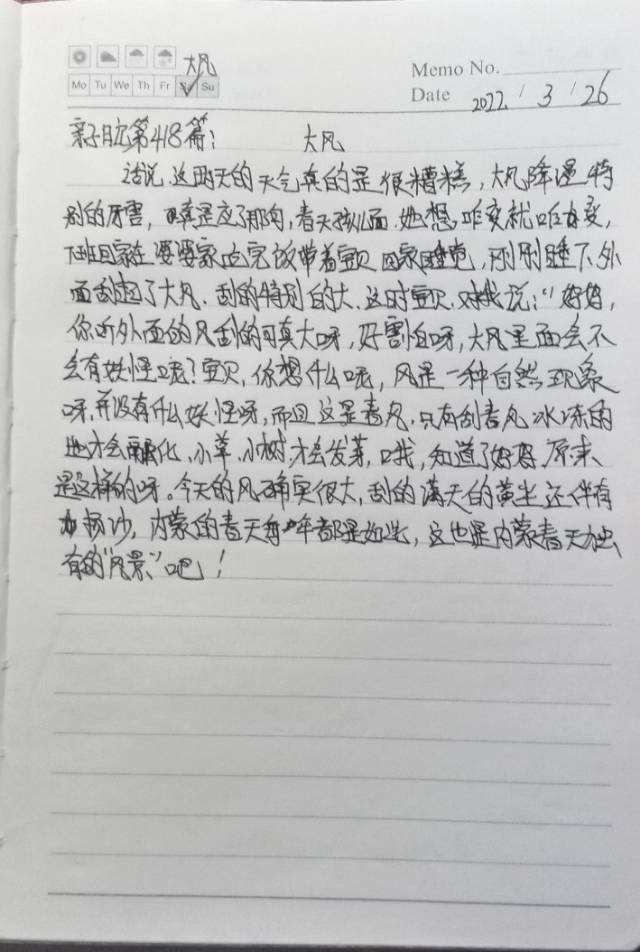 大风
Mo Tu We Th Fr Sa Su
Memo No.
Date 2022 / 3 / 26
亲子日记第418篇： 大风
话说，这两天的天气真的是很糟糕，大风降温特
别的厉害，真是应了那句，春天孩儿面，她想咋变就咋变，
下班回家在婆婆家吃完饭带着宝贝回家睡觉，刚刚睡下外
面刮起了大风，刮的特别的大，这时宝贝对我说：“妈妈，
你听外面的风刮的可真大呀，好害怕呀，大风里面会不
会有妖怪呢？宝贝，你想什么呢，风是一种自然现象
呀，并没有什么妖怪呀，而且这是春风，只有刮春风冰冻的
地才会融化，小草、小树才会发芽，哦，知道了妈妈，原来
是这样的呀。今天的风确实很大，刮的满天的黄尘还伴有
沙，内蒙的春天每年都是如此，这也是内蒙春天独
有的“风景”吧！